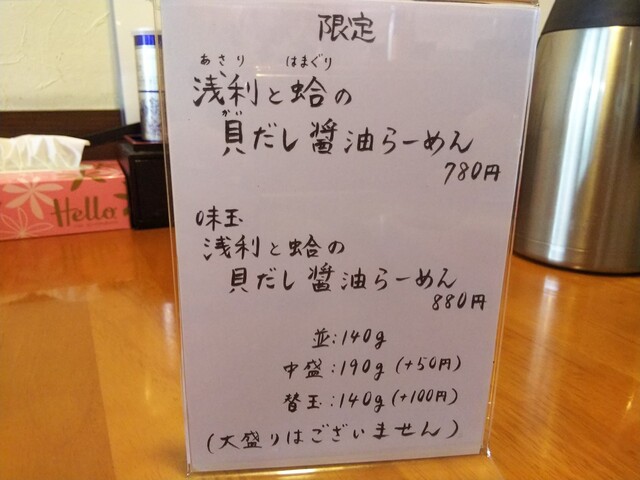 限定
あさり はまぐり
浅利と蛤の
がい
貝だし醤油らーめん
780円
味玉
浅利と蛤の
貝だし醤油らーめん
880円
並:140g
中盛:190g(+50円)
替玉:140g(+100円)
(大盛りはございません)
Hello